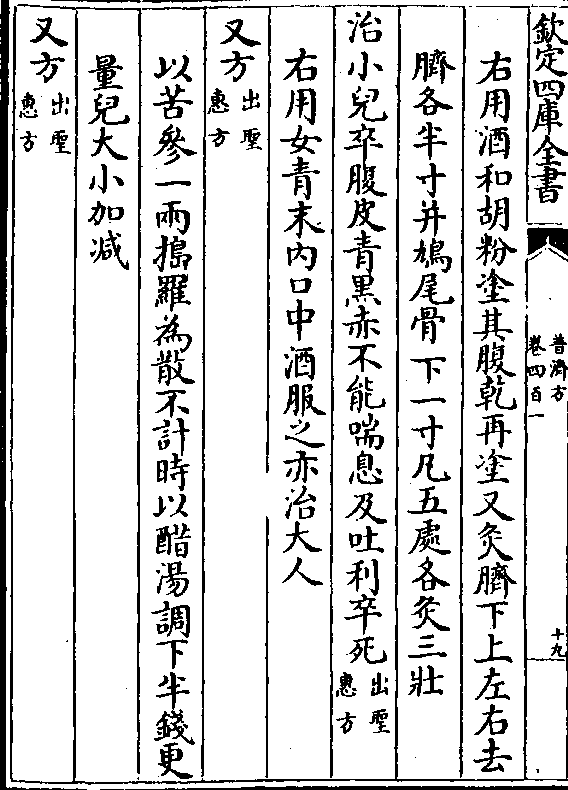 欽定四庫全書
普濟方
卷四百一
十九
右用酒和胡粉塗其腹乾再塗又灸臍下上左右去
臍各半寸并鳩尾骨下一寸凡五處各灸三壯
治小兒卒腹皮青黑赤不能喘息及吐利卒死出聖惠方
右用女青末内口中酒服之亦治大人
又方出聖惠方
以苦參一兩搗羅為散不計時以醋湯調下半錢更
量兒大小加减
又方出聖惠方